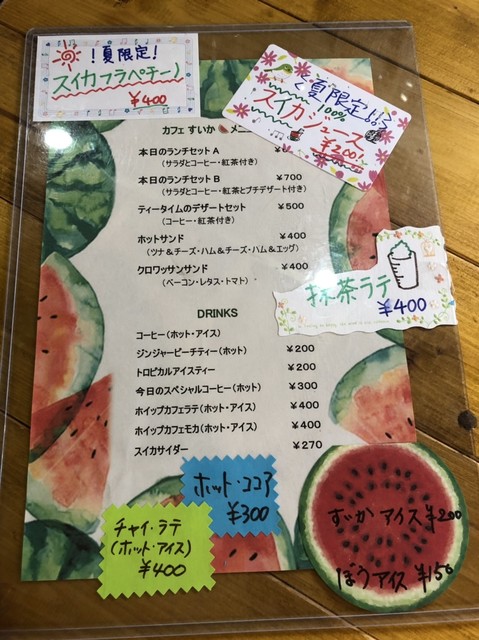 !夏限定!
スイカフラペチーノ
¥400
夏限定!!
100%
スイカジュース
¥200!
カフェ すいか メニ
本日のランチセットA
(サラダとコーヒー・紅茶付き)
本日のランチセットB ¥700
(サラダとコーヒー・紅茶とプチデザート付き)
ティータイムのデザートセット ¥500
(コーヒー・紅茶付き)
ホットサンド ¥400
(ツナ&チーズ・ハム&チーズ・ハム&エッグ)
クロワッサンサンド ¥400
(ベーコン・レタス・トマト)
抹茶ラテ
¥400
DRINKS
コーヒー(ホット・アイス)
ジンジャーピーチティー(ホット) ¥200
トロピカルアイスティー ¥200
今日のスペシャルコーヒー(ホット) ¥300
ホイップカフェラテ(ホット・アイス) ¥400
ホイップカフェモカ(ホット・アイス) ¥400
スイカサイダー ¥270
ホット・ココア
¥300
チャイ・ラテ
(ホット・アイス)
¥400
すいかアイス ¥200
ぼうアイス ¥150